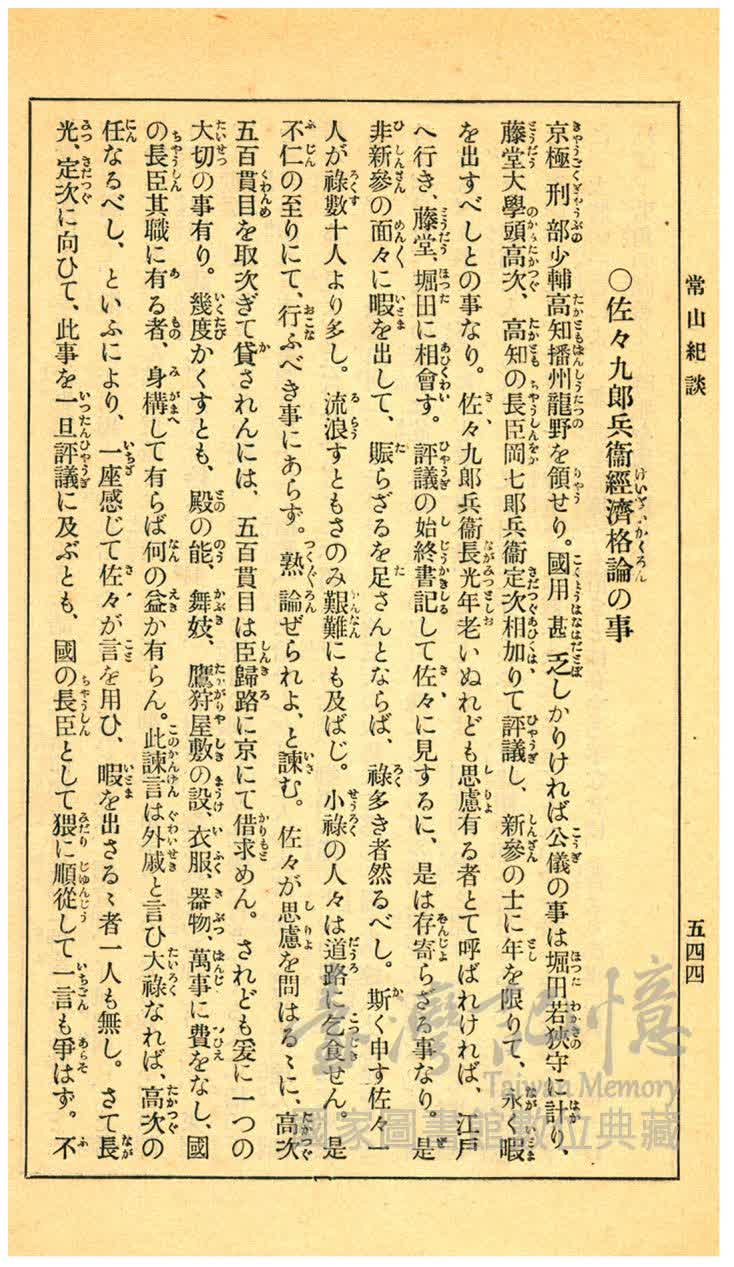 常山紀談
五四四
〇佐々九郎兵衞經濟格論の事
京極刑部少輔高知播州龍野を領せり。國用甚乏しかりければ公儀の事は堀田若狹守に計り、
藤堂大學頭高次、高知の長臣岡七郎兵衞定次相加りて評議し、新參の士に年を限りて、永く暇
を出すべしとの事なり。佐々九郎兵衞長光年老いぬれども思慮有る者とて呼ばれければ、江戸
へ行き、藤堂、堀田に相會す。評議の始終書記して佐々に見するに、是は存寄らざる事なり。是
非新參の面々に暇を出して、賑らざるを足さんとならば、祿多き者然るべし。斯く申す佐々一
人が祿數十人より多し。流浪すともさのみ艱難にも及ばじ。小祿の人々は道路に乞食せん。是
不仁の至りにて、行ふべき事にあらず。熟論ぜられよ、と諫む。佐々が思慮を問はるゝに、高次
五百貫目を取次ぎて貸されんには、五百貫目は臣歸路に京にて借求めん。されども爰に一つの
大切の事有り。幾度かくすとも、殿の能、舞妓、鷹狩屋敷の設、衣服、器物、萬事に費をなし、國
の長臣其職に有る者、身構して有らば何の益か有らん。此諫言は外戚と言ひ大祿なれば、高次の
任なるべし、といふにより、一座感じて佐々が言を用ひ、暇を出さるゝ者一人も無し。さて長
光、定次に向ひて、此事を一旦評議に及ぶとも、國の長臣として猥に順從して一言も爭はず。不
臺灣記憶
Taiwan Memory
國家圖書館數位典藏